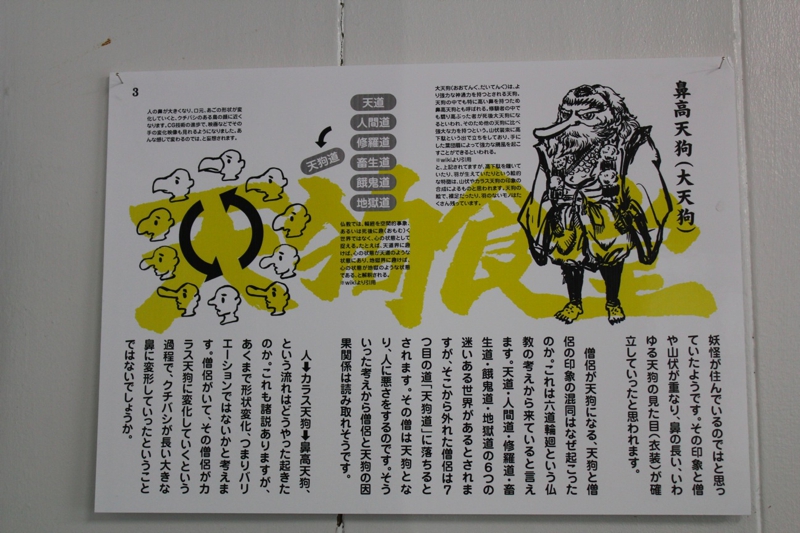 3
鼻高天狗(大天狗)
大天狗(おおてんぐ、だいてんぐ)は、よ
り強力な神通力を持つとされる天狗。
天狗の中でも特に高い鼻を持つため
鼻高天狗とも呼ばれる。修験者の中で
も驕り高ぶった者が死後大天狗にな
るといわれ、そのため他の天狗に比べ
強大な力を持つという。山伏装束に高
下駄という出で立ちをしており、手に
した葉団扇によって強力な暴風を起こ
すことができるといわれる。
※wikiより引用
と、上記されてますが、高下駄を履いて
いたり、羽が生えていたりという総称的
な特徴は、山伏やカラス天狗の印象の
合成によるものと思われます。天狗の
絵で、裸足だったり、羽のないモノはた
くさん残っています。
天道
人間道
修羅道
畜生道
餓鬼道
地獄道
天狗道
仏教では、輪廻を空間的事象、
あるいは死後に趣(おもむ)く
世界ではなく、心の状態として
捉える。たとえば、天道界に趣
けば、心の状態が天道のような
状態にあり、地獄界に趣けば、
心の状態が地獄のような状態
である、と解釈される。
※wikiより引用
人の鼻が大きくなり、口元、あごの形状が変
化していくと、クチバシのある鳥の顔に近く
なります。CG技術の進歩で、映画などでその
手の変化映像も見れるようになりました。あ
んな感じで変わるのでは、と妄想されます。
天狗食堂
妖怪が住んでいるのではと思っ
ていたようです。その印象と僧
や山伏が重なり、鼻の長い、いわ
ゆる天狗の見た目(衣装)が確
立していったと思われます。
僧侶が天狗になる、天狗と僧
侶の印象の混同はなぜ起こった
のか。これは六道輪廻という仏
教の考えから来ていると言え
ます。天道・人間道・修羅道・畜
生道・餓鬼道・地獄道の6つの
迷いある世界があるとされま
すが、そこから外れた僧侶は7
つ目の道「天狗道」に落ちると
されます。その僧は天狗とな
り、人に悪さをするのです。そう
いった考えから僧侶と天狗の因
果関係は読み取れそうです。
人➡カラス天狗➡鼻高天狗、
という流れはどうやって起きた
のか。これも諸説ありますが、
あくまで形状変化、つまりバリ
エーションではないかと考えま
す。僧侶がいて、その僧侶がカ
ラス天狗に変化していくという
過程で、クチバシが長い大きな
鼻に変形していったということ
ではないでしょうか。